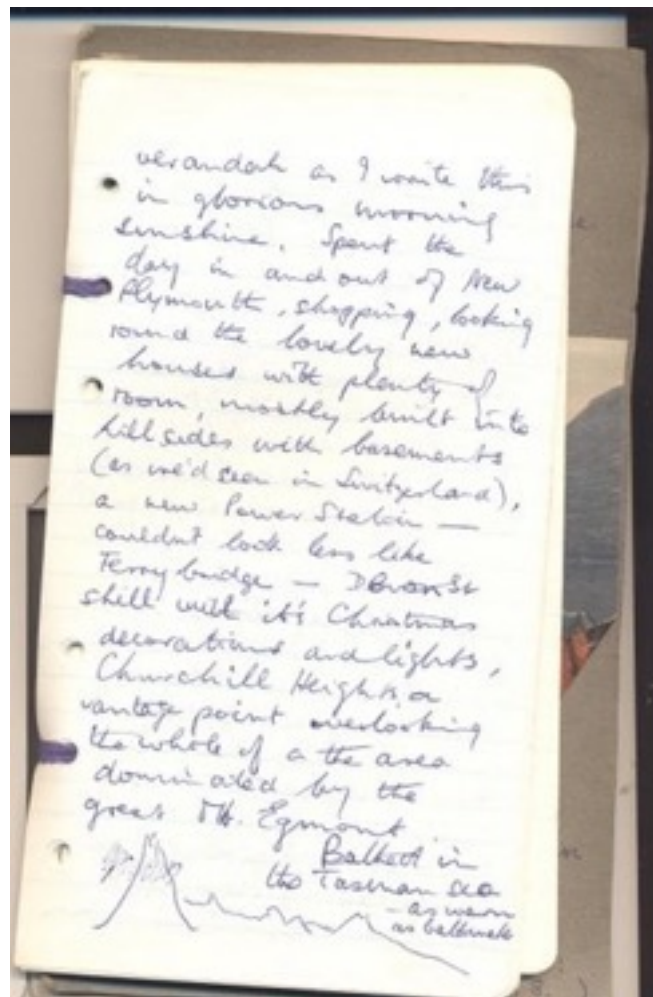 verandah as I write this
in glorious morning
sunshine. Spent the
day in and out of New
Plymouth, shopping, looking
round the lovely new
houses with plenty of
room, mostly built into
hillsides with basements
(as we'd seen in Switzerland),
a new Power Station —
couldn't look less like
Ferrybridge — Devon St
still with it's Christmas
decorations and lights,
Churchill Heights, a
vantage point overlooking
the whole of a the area
dominated by the
great Mt. Egmont.
Bathed in
the Tasman sea
- as warm
as bathwater